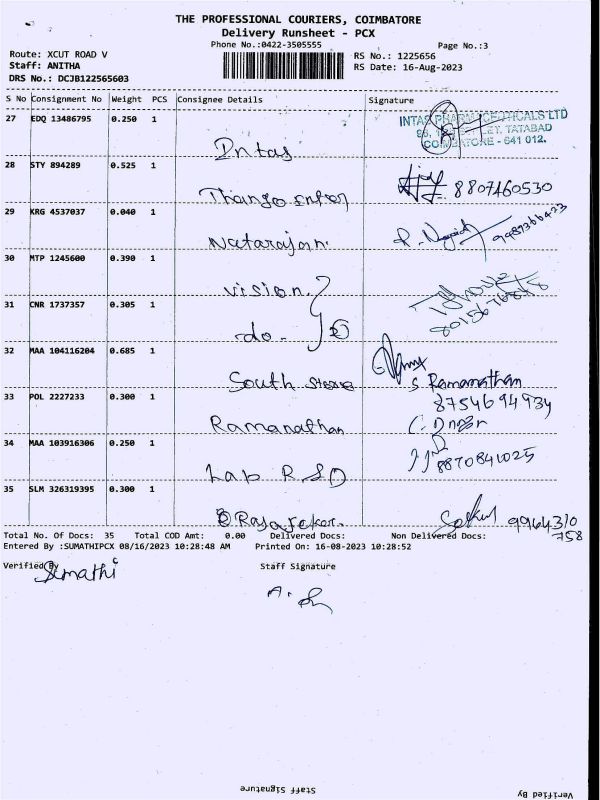 THE PROFESSIONAL COURIERS, COIMBATORE
Delivery Runsheet - PCX
Phone No.:0422-3505555 Page No.:3
Route: XCUT ROAD V RS No.: 1225656
Staff: ANITHA RS Date: 16-Aug-2023
DRS No.: DCJB122565603
S No Consignment No Weight PCS Consignee Details Signature
27 EDQ 13486795 0.250 1
INTAS PHARMACEUTICALS LTD
TATABAD
COIMBATORE - 641 012.
Intas
28 STY 894289 0.525 1
8807460530
Thango Enter
29 KRG 4537037 0.040 1
Natarajan.
30 MTP 1245600 0.390 1
vision.
31 CNR 1737357 0.305 1
do.
32 MAA 104116204 0.685 1
South Stores S Ramanathan
33 POL 2227233 0.300 1 8754694934
Ramanathan
34 MAA 103916306 0.250 1
8870841025
Lab R S D
35 SLM 326319395 0.300 1
Rajasekar. 9964310
758
Total No. Of Docs: 35 Total COD Amt: 0.00 Delivered Docs: Non Delivered Docs:
Entered By :SUMATHIPCX 08/16/2023 10:28:48 AM Printed On: 16-08-2023 10:28:52
Verified By Staff Signature
Sumathi
Staff Signature Verified By